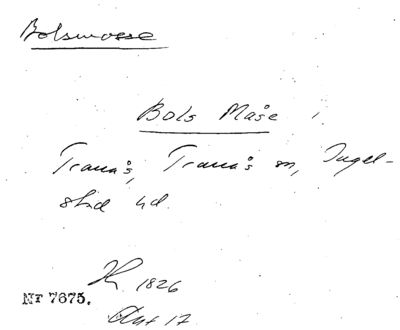 Bolsmosse
Bols Måse
Tranås, Tranås sn, Ingel-
stad hd.
K 1826
Akt 17
Nr 7675.